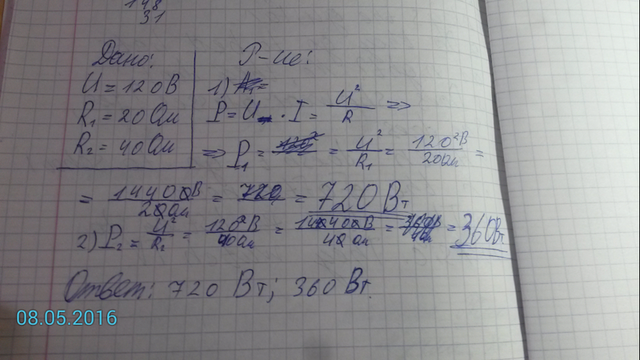 148
31
Дано:
U = 120В
R₁ = 20 Ом
R₂ = 40 Ом
Р-ие:
1)
P = U · I = U²/R =>
=> P₁ = = U²/R₁ = 120²В/20Ом =
= 14400В/20Ом = = 720 Вт
2) P₂ = U²/R₂ = 120²В/40Ом = 14400В/40Ом = = 360Вт
Ответ: 720 Вт; 360 Вт.
08.05.2016